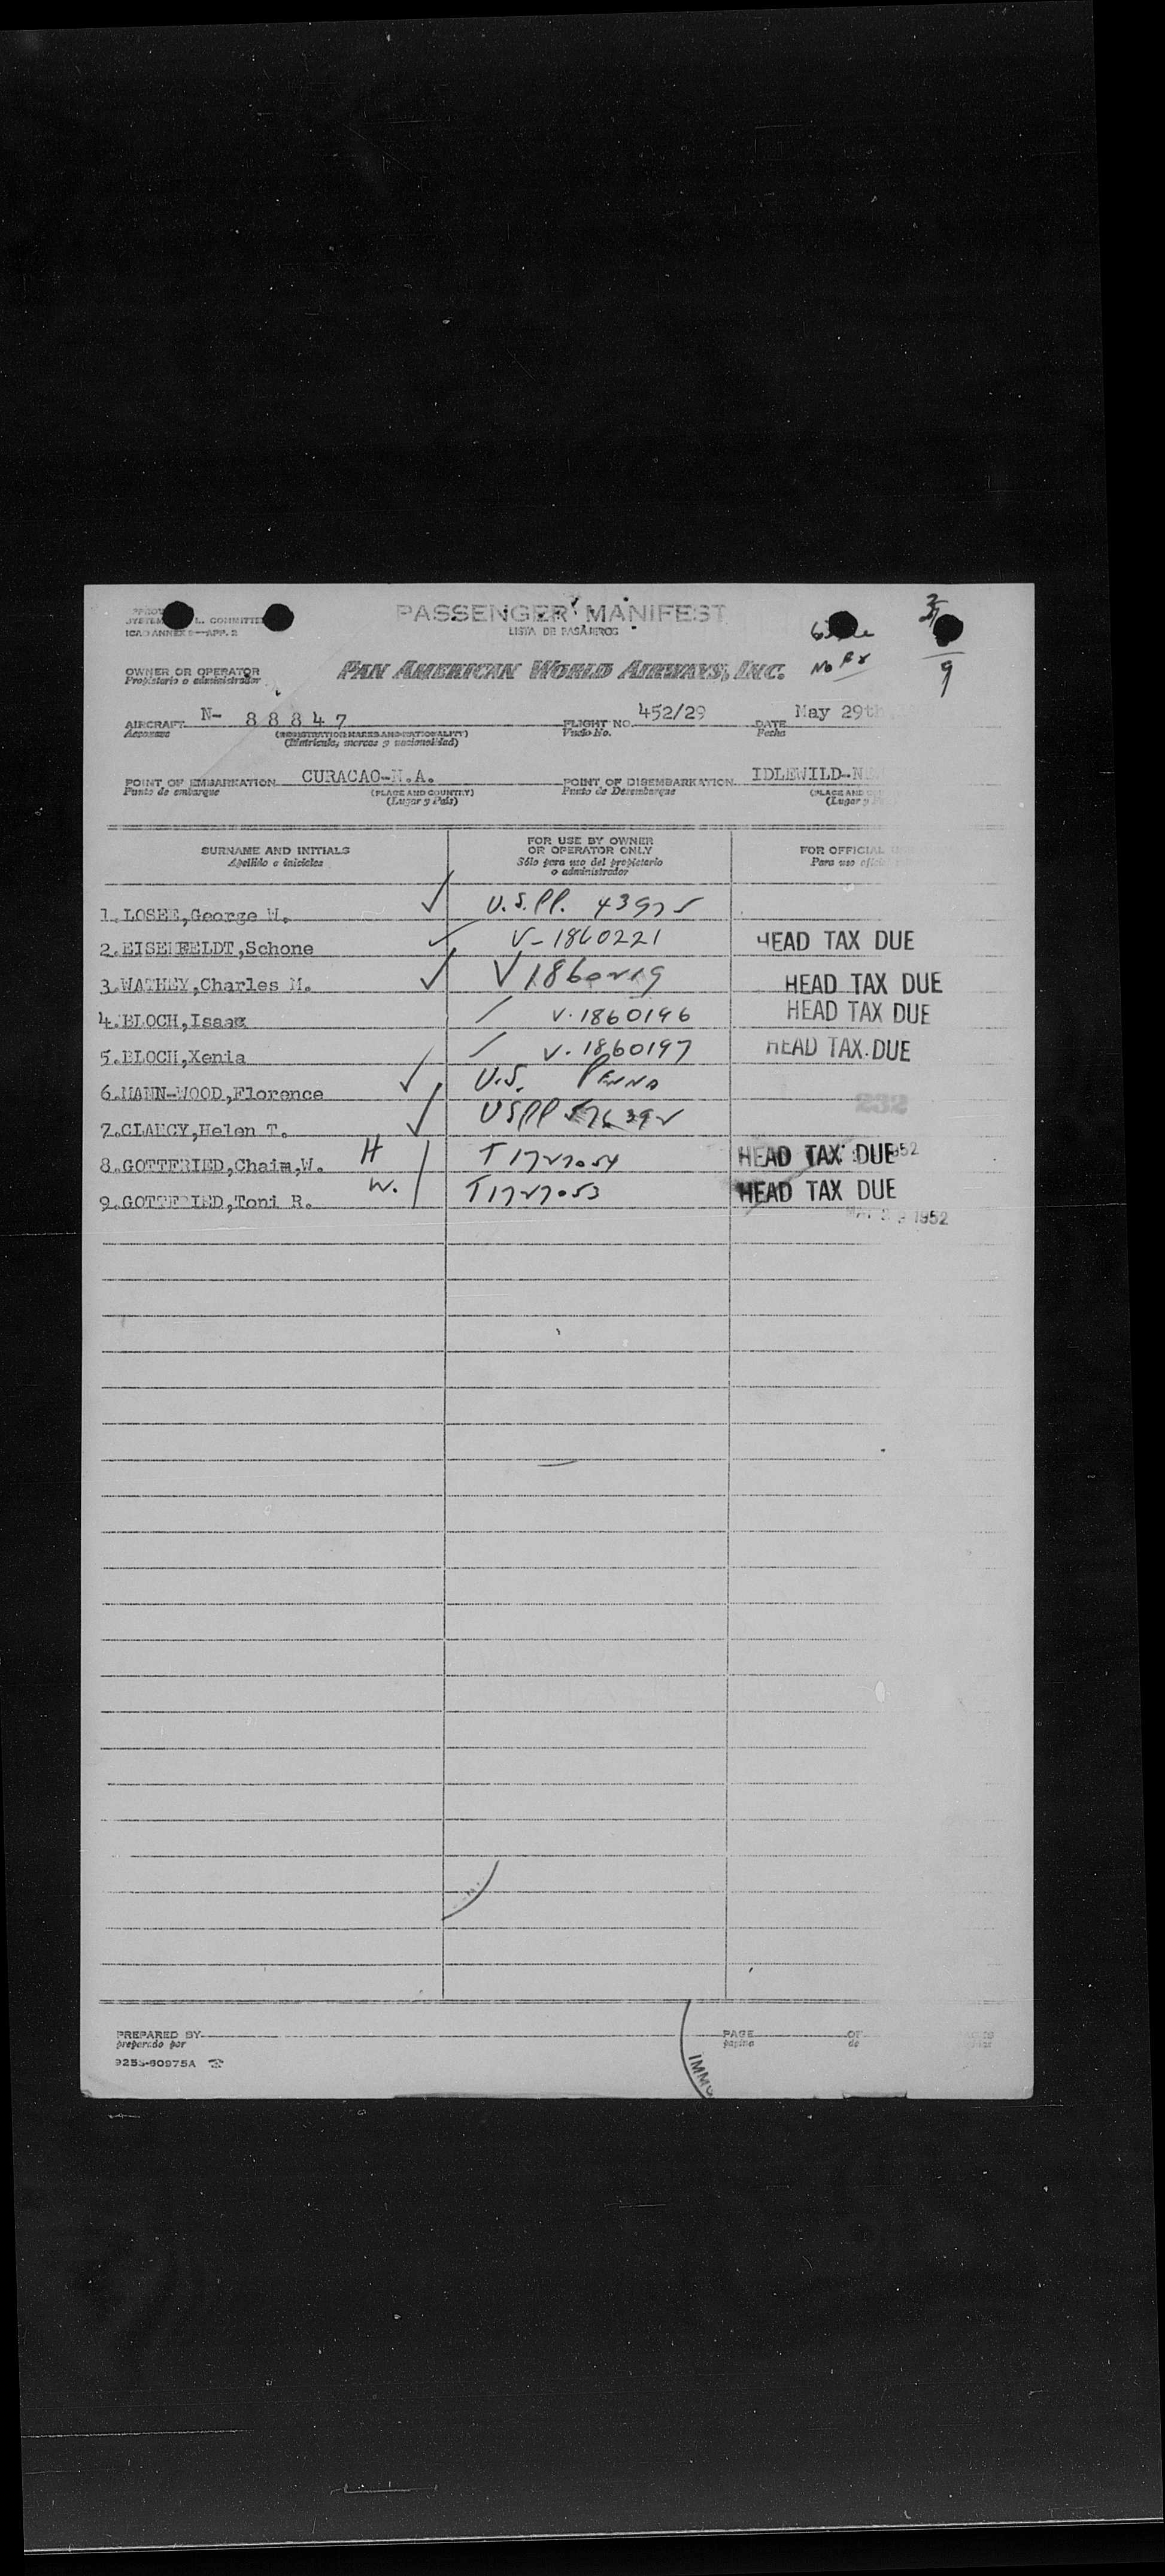 PASSENGER MANIFEST
LISTA DE PASAJEROS
ICAO ANNEX 9—APP. 2
No
9
OWNER OR OPERATOR
Propietario o administrador
PAN AMERICAN WORLD AIRWAYS, INC.
AIRCRAFT N- 8 8 8 4 7 FLIGHT NO. 452/29 DATE May 29th
Aeronave (REGISTRATION MARKS AND NATIONALITY) Vuelo No. Fecha
(Matricula, marcas y nacionalidad)
POINT OF EMBARKATION CURACAO-N.A. POINT OF DISEMBARKATION IDLEWILD-N
Punto de embarque (PLACE AND COUNTRY) Punto de Desembarque (PLACE AND
(Lugar y País) (Lugar y
SURNAME AND INITIALS FOR USE BY OWNER OR OPERATOR ONLY FOR OFFICIAL
Apellido e iniciales Sólo para uso del propietario o administrador Para uso
1. LOSEE, George W. U.S.PP. 43975
2. EISENFELDT, Schone V-1860221 HEAD TAX DUE
3. WATHEY, Charles M. V1860219 HEAD TAX DUE
4. BLOCH, Isaak V.1860196 HEAD TAX DUE
5. BLOCH, Xenia V.1860197 HEAD TAX DUE
6. MANN-WOOD, Florence U.S. Penna
232
7. CLANCY, Helen T. USPP 576392
8. GOTTFRIED, Chaim, W. H T1727054 HEAD TAX DUE 1952
9. GOTTFRIED, Toni R. W. T1727053 HEAD TAX DUE
1952
PREPARED BY PAGE OF
preparado por página de
IMMI